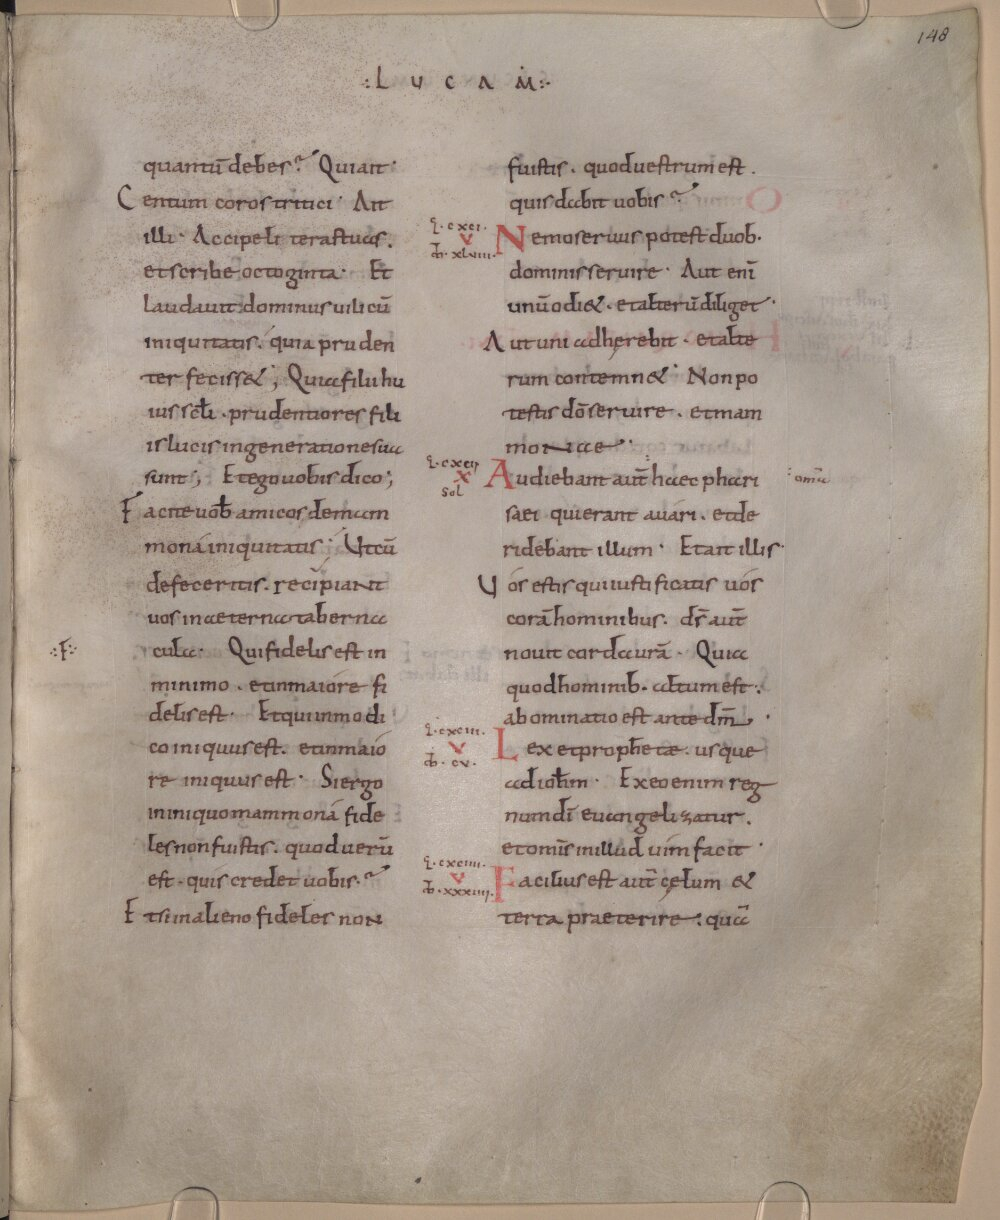 148
·: L U C A M :·
quantū debes? Qui ait·
Centum coros tritici· Ait
illi· Accipe litteras tuas.
et scribe octoginta· Et
laudavit dominus uilicū
iniquitatis. quia pruden
ter fecisset; Quia filii hu
ius sclī. prudentiores fili
is lucis in generatione sua
sunt; Et ego uobis dico;
Facite uob amicos de mam
mona iniquitatis; Ut cū
defeceritis. recipiant
uos in aeterna taberna
cula· Qui fidelis est in
·:F:·
minimo. et in maiore fi
delis est· Et qui in modi
co iniquus est. et in maio
re iniquus est· Si ergo
in iniquo mammona fide
les non fuistis. quod uerū
est. quis credet uobis?
Et si in alieno fideles non
fuistis. quod uestrum est.
quis dabit uobis?
cxci.
V
xlviii.
Nemo seruus potest duob·
dominis seruire· Aut enī
unū odiet. et alterū diliget·
Aut uni adherebit. et alte
rum contemnet· Non po
testis dō seruire. et mam
monae·
cxcii
X
sol
Audiebant aut̄ haec phari
:omīa
saei qui erant auari. et de
ridebant illum· Et ait illis·
Uos estis qui iustificatis uos
corā hominibus. ds̄ aut̄
nouit corda urā· Quia
quod hominib· altum est:
abominatio est ante dm̄.
cxciii.
V
cv.
Lex et prophetae. usque
ad iohīm· Ex eo enim reg
num dī euangelizatur.
et omīs in illud uim facit·
cxciiii.
V
xxxiiii.
Facilius est aut̄ celum &
terra praeterire: quā